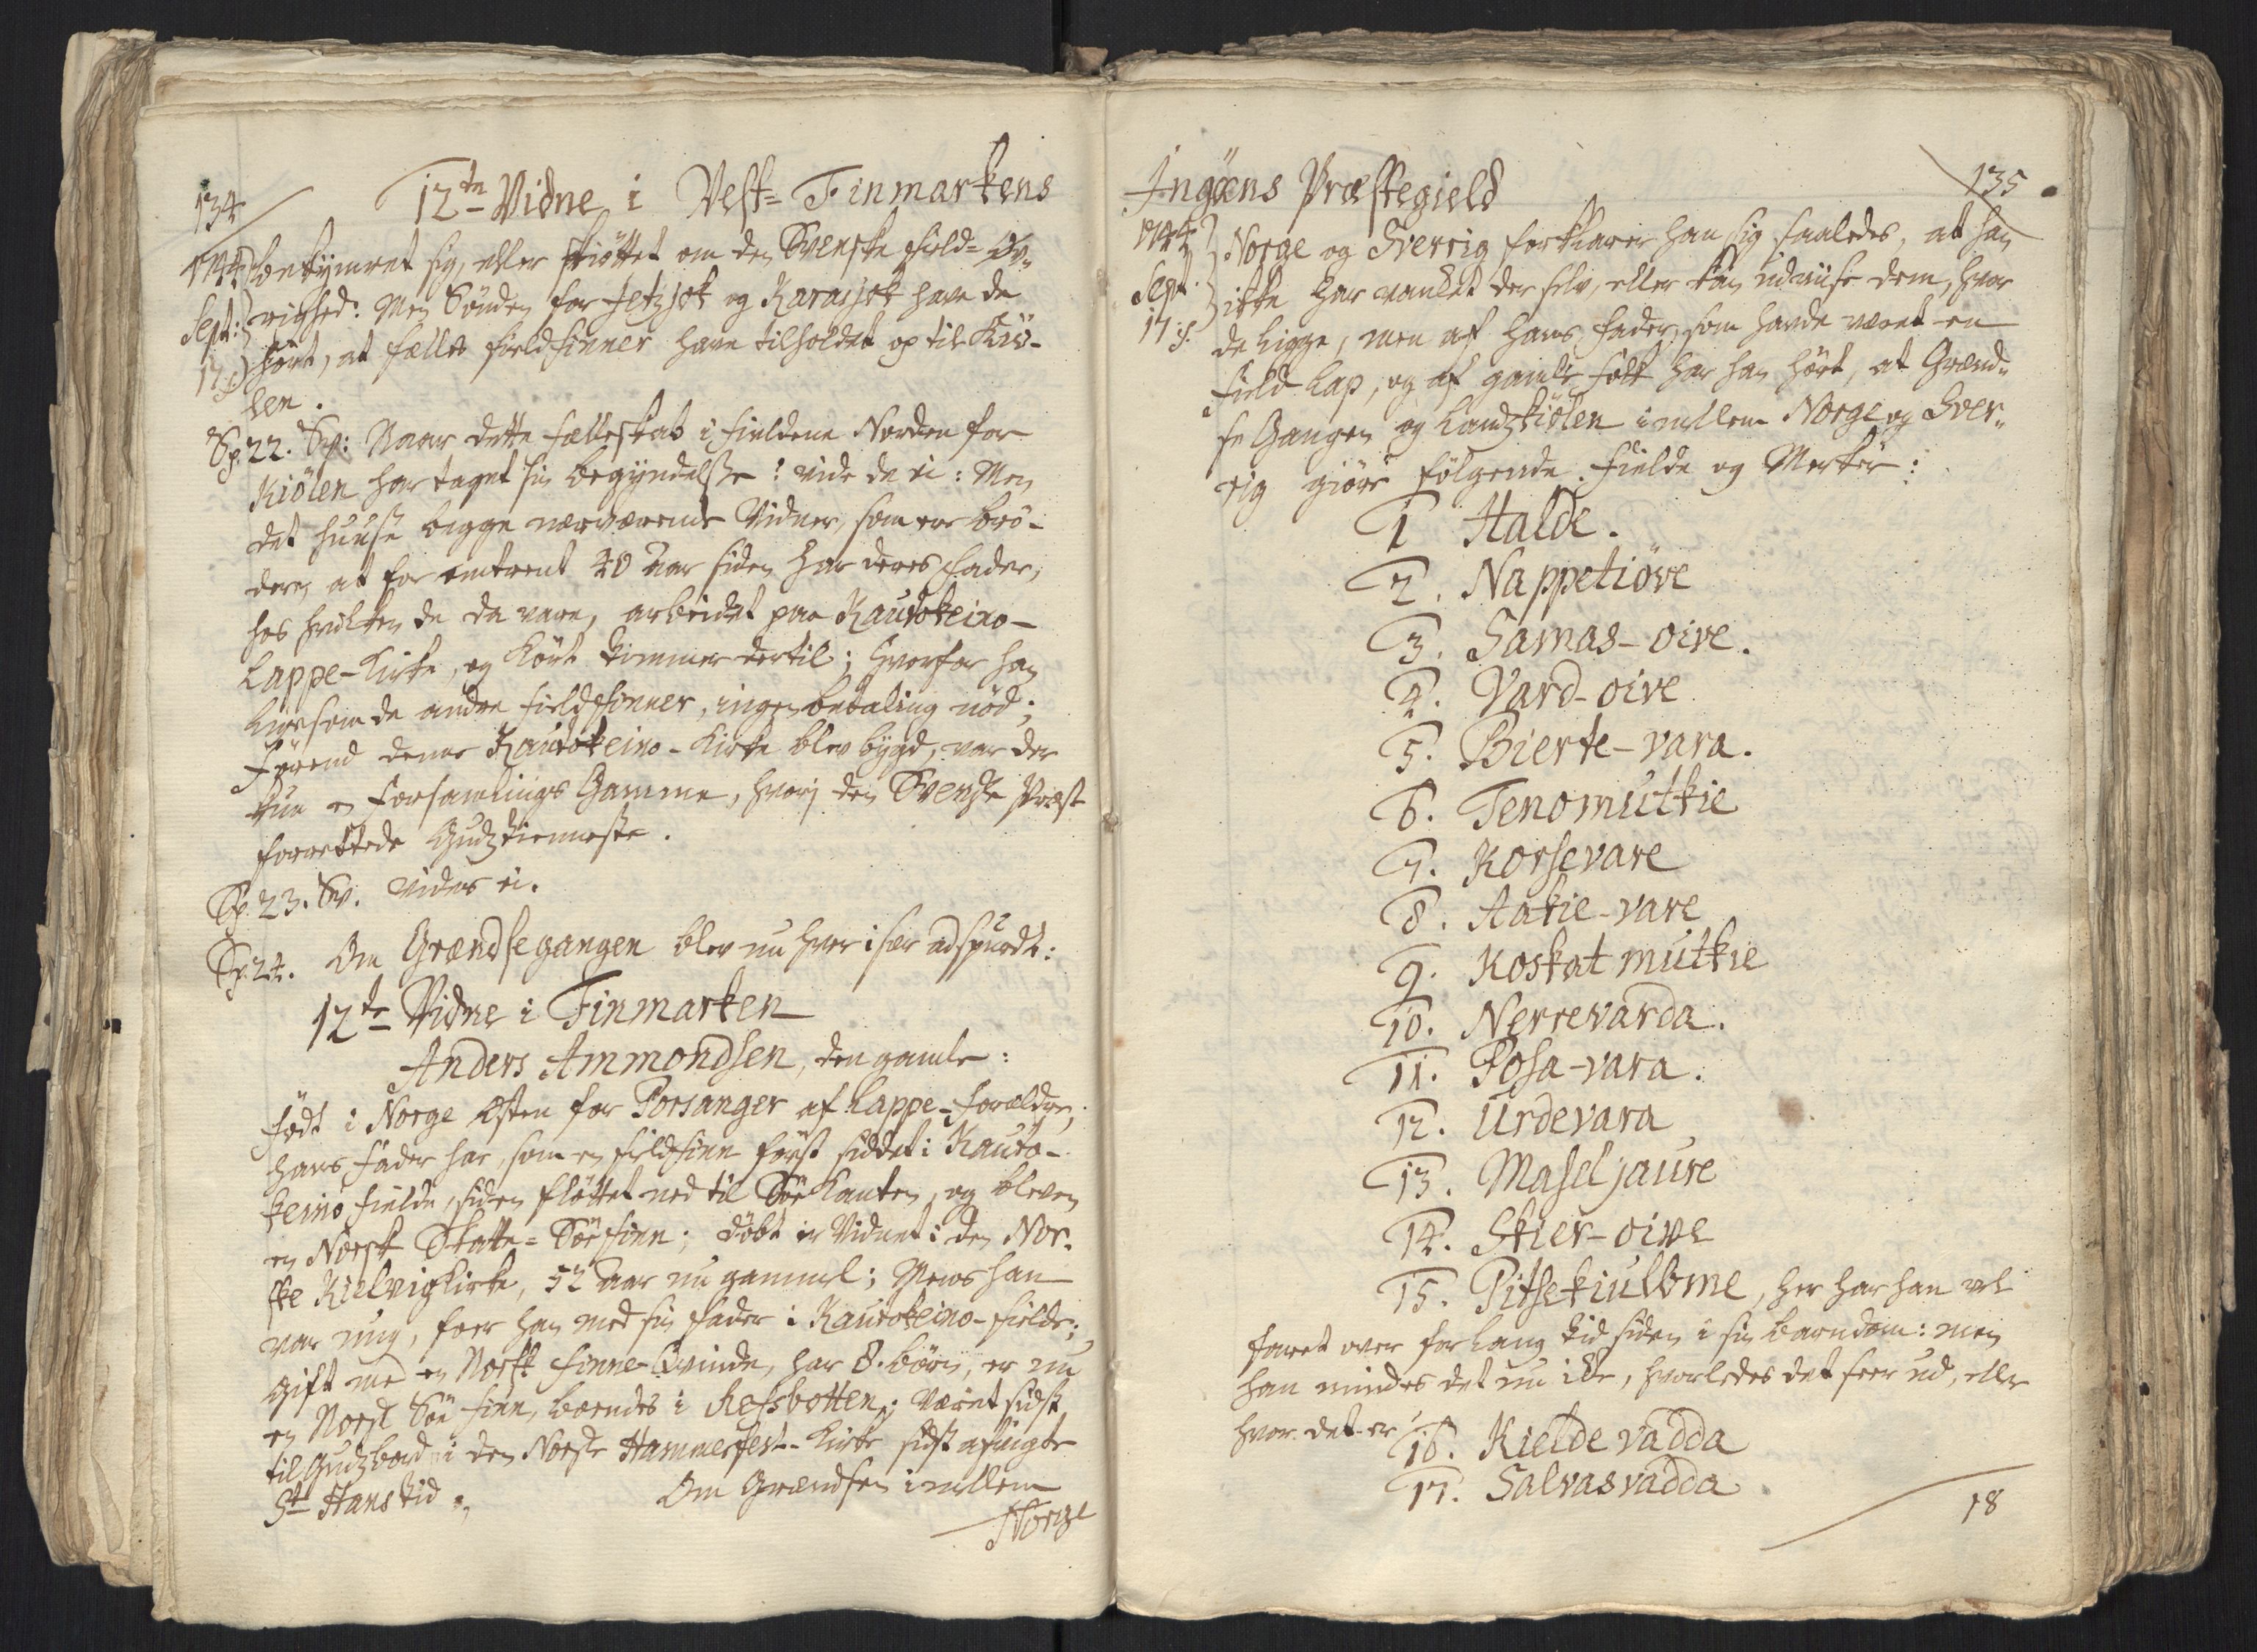 134
12te Vidne i Vest-Finmarkens
1744 bekymret sig, eller skiøttet om den Svenske Field-Øv-
Sept: righed: Men Sønden for Jetzjok og Karasjok have de
17. hørt, at fælles fieldfinner have tilholdet op til Kiö-
len.
Sp. 22. Sv: Naar dette fælleskab i fieldene Norden for
Kiölen har taget sin begyndelse? vide de ei: Men
det huuse begge nærværende Vidner, som ere brø-
dere, at for omtrent 40 Aar siden har deres fader,
hos hvilken de da vare, arbeidet paa Kautokeino-
Lappe-Kirke, og kört tømmer dertil; hvorfor han
ligesom de andre fieldfinner, ingen betaling nød;
förend denne Kautokeino-Kirke blev bygd, var der
kun en forsamlings Gamme, hvori den Svenske Præst
forrettede Gudztienneste.
Sp. 23. Sv. vides ei.
Sp. 24. Om Grændsegangen blev nu hver i sær udspurdt:
12te Vidne i Finmarken
Anders Ammondsen, den gamle:
född i Norge Østen for Porsanger af Lappe-forældre,
hans fader har, som en fieldfinn først siddet i Kauto-
keino fielde, siden flöttet ned til Söe Kanten, og bleven
en Norsk Skatte-Söefinn; döbt er Vidnet i den Nor-
ske Kielvigkirke, 52 Aar nu gammel; Mens han
var ung, foer han med sin fader i Kautokeino-fielde;
gift med en Norsk finne-Qvinde, har 8. börn, er nu
en Norsk Söe finn, boendes i Refsbotten; været sidst
til Gudz bord i den Norske Hammerfest-Kirke sidst afvigte
St Hans tid.
Om Grændsen imellem
Norge
Ingöens Præstegield
135
1744 Norge og Sverrig forklarer han sig saaledes, at han
Sept. ikke har vanket der selv, eller kan udviise dem, hvor
17. de ligge, men af hans fader, som havde været en
field Lap, og af gamle folk har han hört, at Grænd-
se Gangen og Landzkiölen imellem Norge og Sver-
rig giöre fölgende fielde og Merker:
1 Halde.
2. Nappetiöve
3. Samas-oive.
4. Vard-oive
5. Bierte-vara.
6. Tenomutkie
7. Korsevare
8. Aakie-vare
9. Koskat mutkie
10. Nerrevarda.
11. Posa-vara.
12. Urdevara
13. Maseljaure
14. Skier-oive
15. Pitsekiulbme, her har han vel
faret over for lang tid siden i sin barndom: men
han mindes det nu ikke, hvorledes det seer ud, eller
hvor det er
16. Kieldevadda
17. Salvasvadda
18